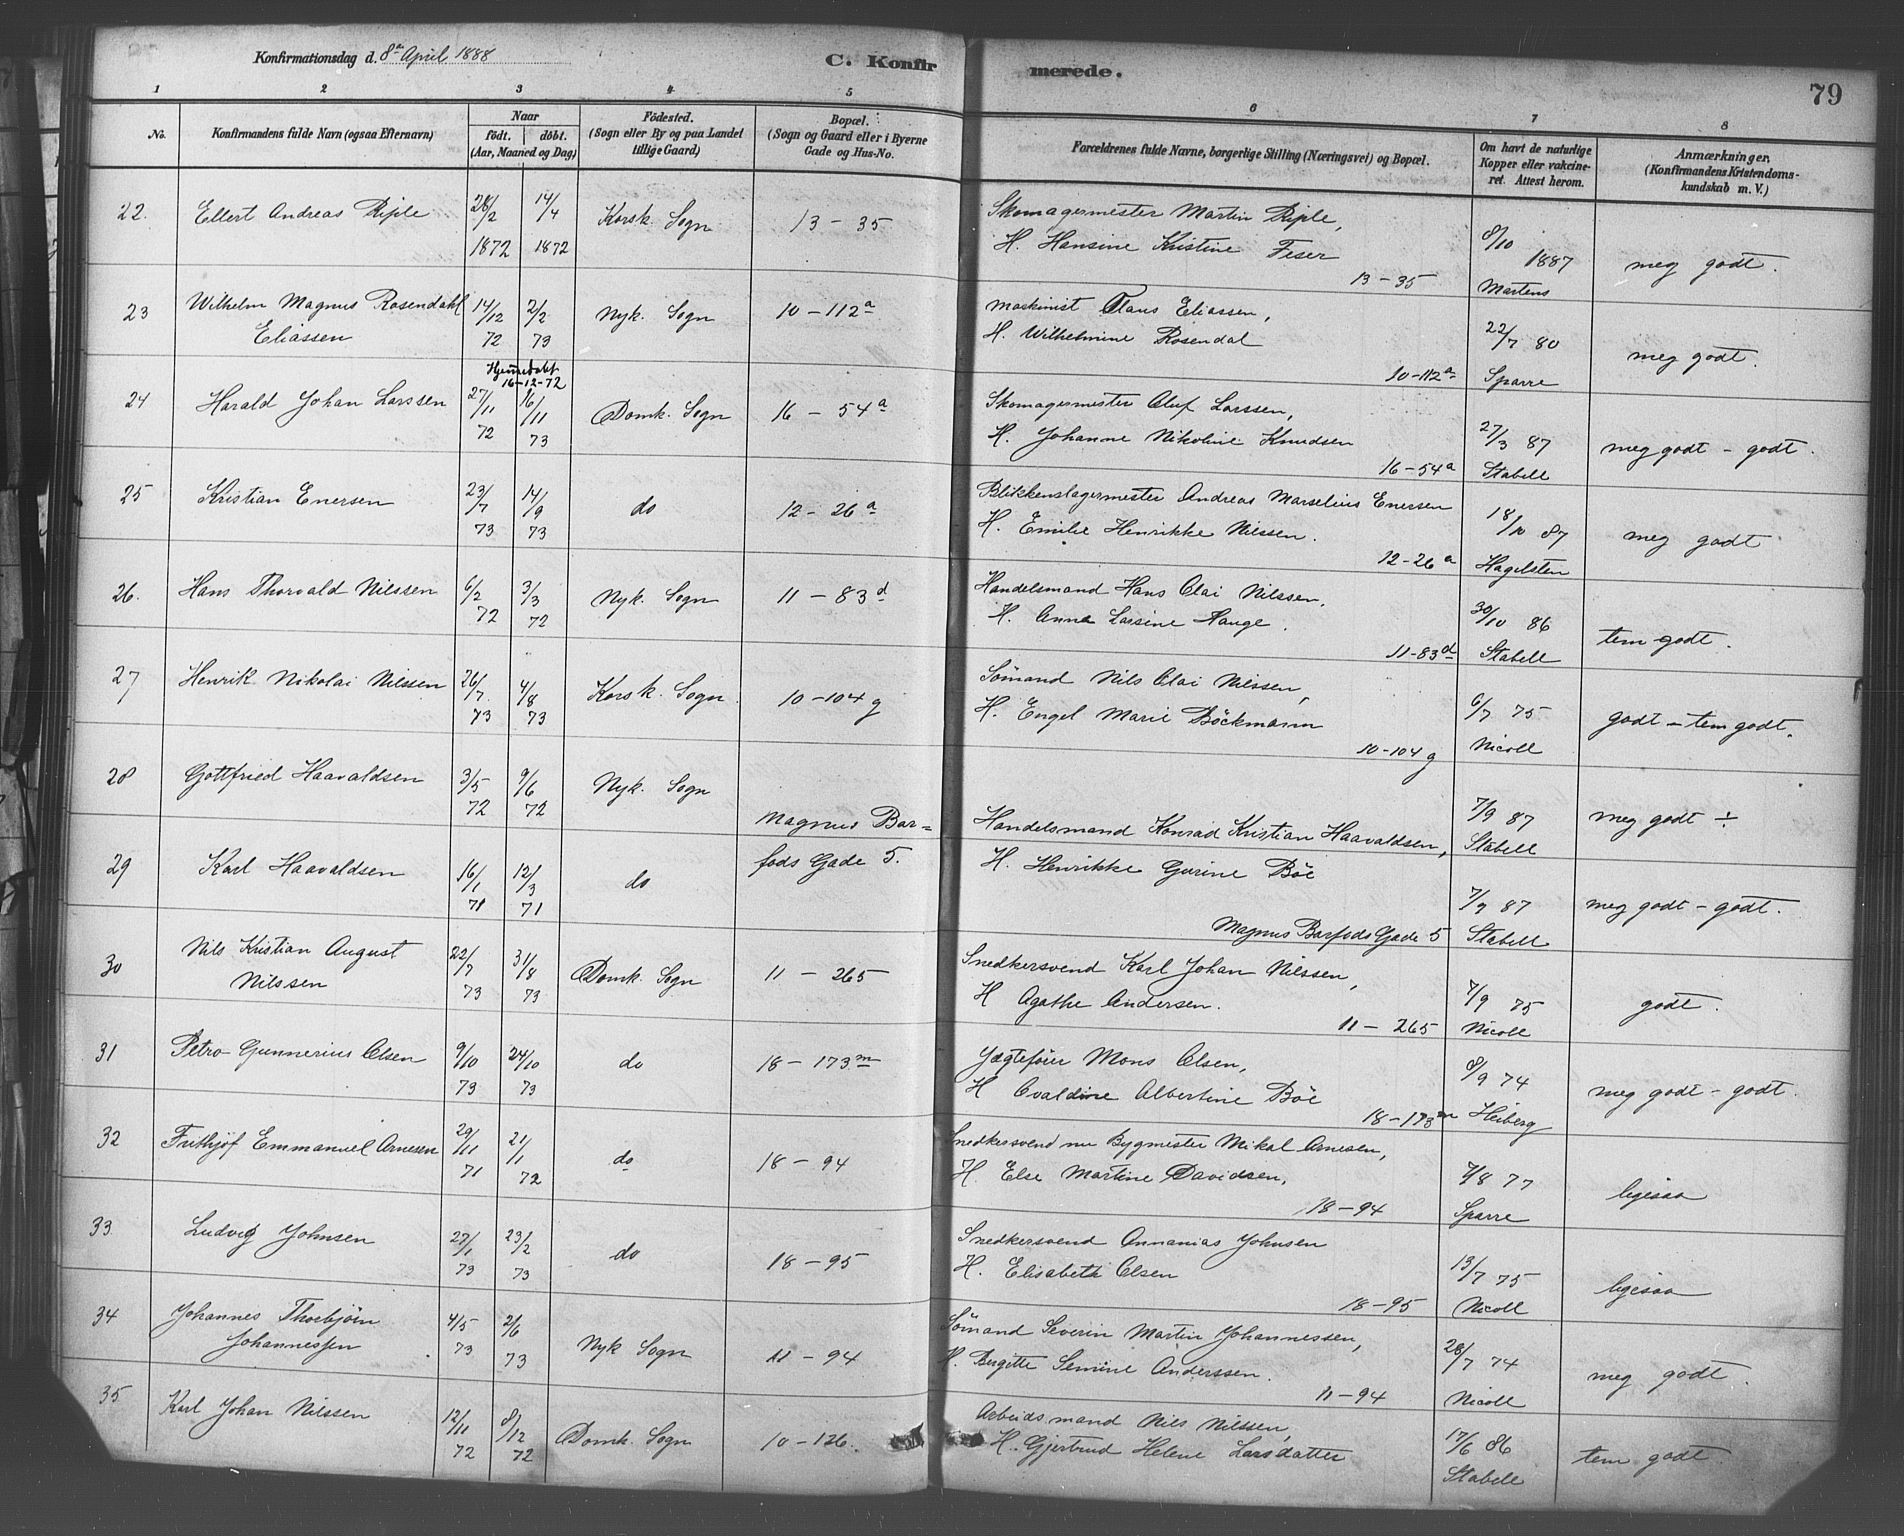 Konfirmationsdag d. 8de April 1888
C. Konfirmerede.
79
1 2 3 4 5 6 7 8
No.
Konfirmandens fulde Navn (ogsaa Efternavn)
Naar
födt. döbt.
(Aar, Maaned og Dag)
Födested.
(Sogn eller By og paa Landet
tillige Gaard)
Bopæl.
(Sogn og Gaard eller i Byerne
Gade og Hus-No.
Forældrenes fulde Navne, borgerlige Stilling (Næringsvei) og Bopæl.
Om havt de naturlige
Kopper eller vakcine-
ret. Attest herom.
Anmærkninger,
(Konfirmandens Kristendoms-
kundskab m. V.)
22. Ellert Andreas Riple 28/2 1872 14/4 1872 Korsk. Sogn 13 - 35
Skomagermester Martin Riple,
H. Hansine Kristine Feser
13 - 35
8/10 1887 Martens
meg godt.
23 Wilhelm Magnus Rosendahl
Eliassen
14/12 72 2/2 73 Nyk. Sogn 10 - 112a
Maskinist Claus Eliassen,
H. Wilhelmine Rosendal
10-112a
22/7 80 Sparre
meg godt.
Hjemmedøbt
16-12-72
24 Harald Johan Larssen 27/11 72 16/11 73 Domk. Sogn 16 - 54a
Skomagermester Oluf Larssen,
H. Johanne Nikoline Knudsen
16-54a
27/3 87 Stabell
meg godt - godt.
25 Kristian Enersen 23/7 73 14/9 73 do 12 - 26a
Blikkenslagermester Andreas Marselius Enersen
H. Emilie Henrikke Nilssen.
12-26a
18/10 87 Hagelsten
meg godt
26. Hans Thorvald Nilssen 6/2 72 3/3 72 Nyk. Sogn 11 - 83d
Handelsmand Hans Olai Nilssen,
H. Anna Larsine Hauge.
11-83d
30/10 86 Stabell
tem godt.
27 Henrik Nikolai Nilssen 26/7 73 4/8 73 Korsk. Sogn 10-104 g
Sømand Nils Olai Nilssen,
H. Engel Marie Böckmann
10-104 g
6/7 75 Nicoll
godt - tem godt.
28 Gottfried Haavaldsen 3/5 72 9/6 72 Nyk. Sogn
Magnus Bar=
fods Gade 5.
Handelsmand Konrad Kristian Haavaldsen,
H. Henrikke Gurine Böe
Magnus Barfods Gade 5
7/9 87 Stabell
meg godt ÷
29 Karl Haavaldsen 16/1 71 12/3 71 do
7/9 87 Stabell
meg godt - godt.
30 Nils Kristian August
Nilssen
22/7 73 31/8 73 Domk. Sogn 11 - 265
Snedkersvend Karl Johan Nilssen,
H Agathe Andersen.
11 - 265
7/9 75 Nicoll
godt.
31 Petro Gunnerius Olsen 9/10 73 24/10 73 do 18 - 173m
Jægtefører Mons Olsen,
H Ovaldine Albertine Böe
18-173m
8/9 74 Heiberg
meg godt - godt.
32 Frithjof Emmanuel Arnesen 29/11 71 21/1 72 do 18 - 94
Snedkersvend nu Bygmester Mikal Arnesen,
H. Else Martine Davidsen,
18-94
7/8 77 Sparre
ligesaa
33 Ludvig Johnsen 27/1 73 23/2 73 do 18 - 95
Snedkersvend Annanias Johnsen
H. Elisabeth Olsen
18-95
13/7 75 Nicoll
ligesaa
34 Johannes Thorbjörn
Johannessen
4/5 73 2/6 73 Nyk Sogn 11 - 94
Sömand Severin Martin Johannessen,
H. Bergitte Semine Anderssen.
11-94
28/7 74 Nicoll
meg godt.
35 Karl Johan Nilssen 12/11 72 8/12 72 Domk. Sogn 10-126.
Arbeidsmand Nils Nilssen,
H. Gjertrud Helene Larsdatter
17/6 86 Stabell
tem godt.